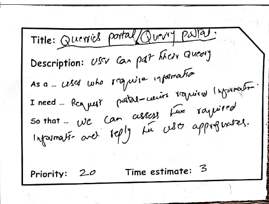 Title: Queries portal / Query portal.
Description: user can post their Query
As a ... user who require information
I need ... Request portal required Information.
So that ... we can assess the required
Information and reply the user appropriates.
Priority: 20 Time estimate: 3